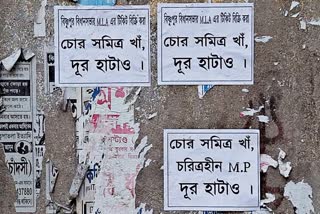 বিষ্ণুপুর বিধানসভার M.L.A এর টিকিট বিক্রি করা
চোর সমিত্র খাঁ,
দূর হাটাও ।
বিষ্ণুপুর বিধানসভার M.L.A এর টিকিট বিক্রি করা
চোর সমিত্র খাঁ,
দূর হাটাও ।
চোর সমিত্র খাঁ,
চরিত্রহীন M.P
দূর হাটাও ।
চাঁদসী